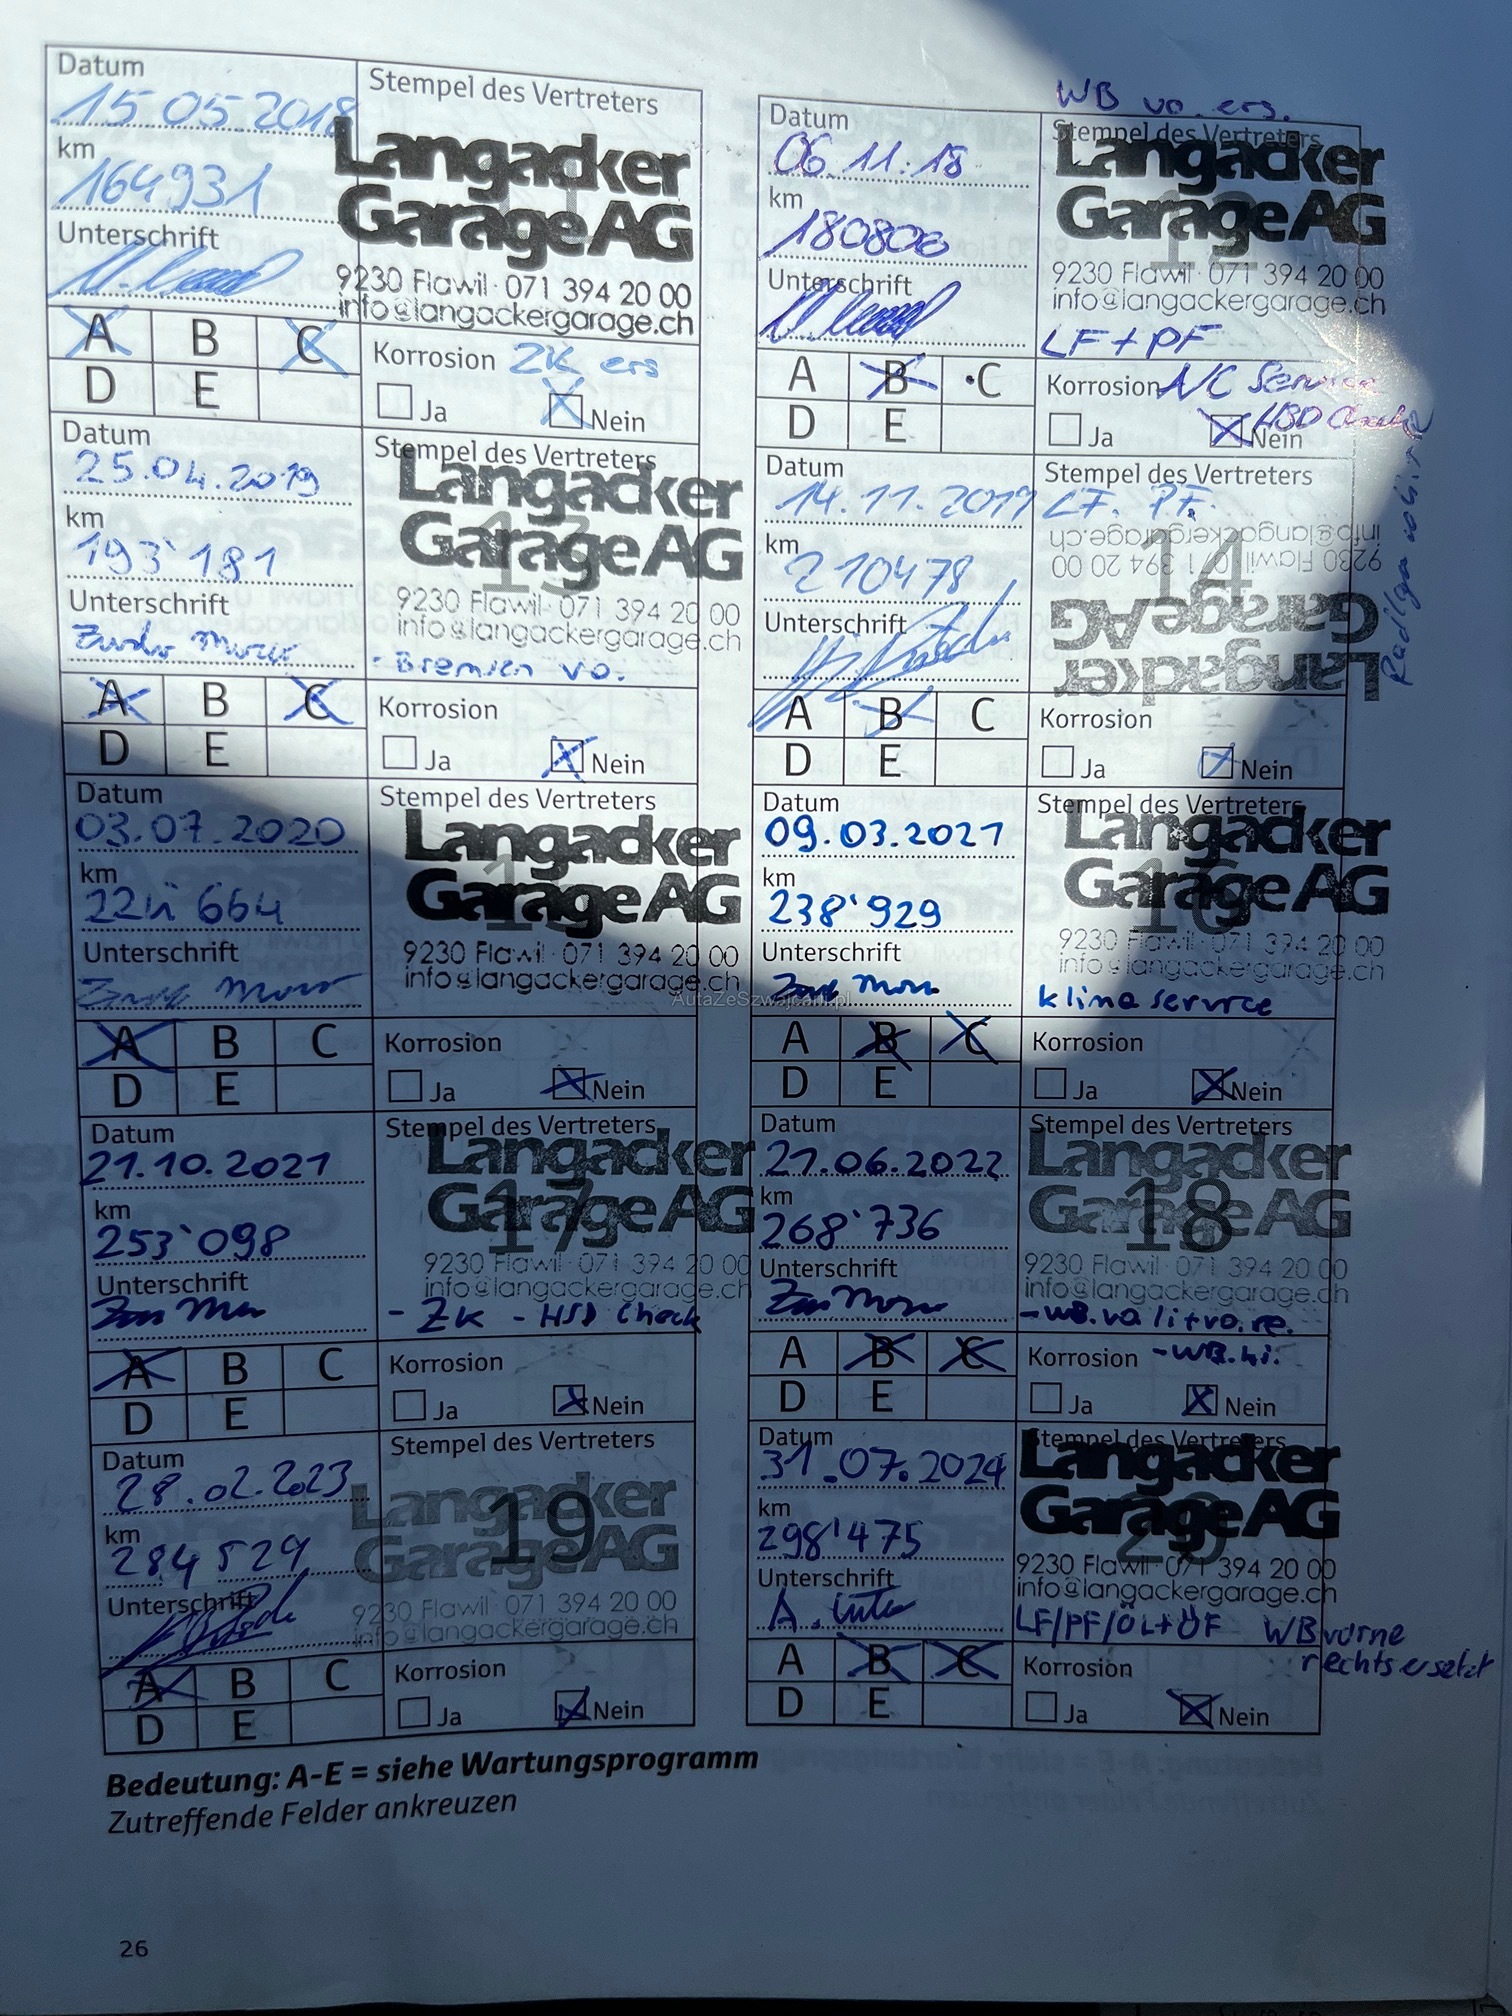 Datum
15 05.2018
km
164931
Unterschrift
Stempel des Vertreters
11
Langacker
Garage AG
9230 Flawil · 071 394 20 00
info@langackergarage.ch
A B C
D E
Korrosion ZK ers
Ja Nein
WB vo. ers.
Datum
06.11.18
km
180800
Unterschrift
Stempel des Vertreters
12
Langacker
Garage AG
9230 Flawil · 071 394 20 00
info@langackergarage.ch
LF + PF
A B C
D E
Korrosion
Service
HSD
Ja Nein
Datum
25.04.2019
km
193'181
Unterschrift
Stempel des Vertreters
13
Langacker
Garage AG
9230 Flawil · 071 394 20 00
info@langackergarage.ch
- Bremsen vo.
A B C
D E
Korrosion
Ja Nein
Datum
14.11.2019
km
210478
Unterschrift
Stempel des Vertreters
LF. PF.
14
Langacker
Garage AG
9230 Flawil · 071 394 20 00
info@langackergarage.ch
A B C
D E
Korrosion
Ja Nein
Datum
03.07.2020
km
224'664
Unterschrift
Stempel des Vertreters
15
Langacker
Garage AG
9230 Flawil · 071 394 20 00
info@langackergarage.ch
A B C
D E
Korrosion
Ja Nein
Datum
09.03.2021
km
238'929
Unterschrift
Stempel des Vertreters
16
Langacker
Garage AG
9230 Flawil · 071 394 20 00
info@langackergarage.ch
klima service
A B C
D E
Korrosion
Ja Nein
AutaZeSzwajcarii.pl
Datum
21.10.2021
km
253'098
Unterschrift
Stempel des Vertreters
17
Langacker
Garage AG
9230 Flawil · 071 394 20 00
info@langackergarage.ch
- ZK - HSD Check
A B C
D E
Korrosion
Ja Nein
Datum
21.06.2022
km
268'736
Unterschrift
Stempel des Vertreters
18
Langacker
Garage AG
9230 Flawil · 071 394 20 00
info@langackergarage.ch
- WB.vo li+vo.re.
A B C
D E
Korrosion - WB.hi.
Ja Nein
Datum
28.02.2023
km
284 529
Unterschrift
Stempel des Vertreters
19
Langacker
Garage AG
9230 Flawil · 071 394 20 00
info@langackergarage.ch
A B C
D E
Korrosion
Ja Nein
Datum
31.07.2024
km
298'475
Unterschrift
Stempel des Vertreters
20
Langacker
Garage AG
9230 Flawil · 071 394 20 00
info@langackergarage.ch
LF/PF/ÖL+ÖF WB vorne
rechts ersetzt
A B C
D E
Korrosion
Ja Nein
Bedeutung: A-E = siehe Wartungsprogramm
Zutreffende Felder ankreuzen
26